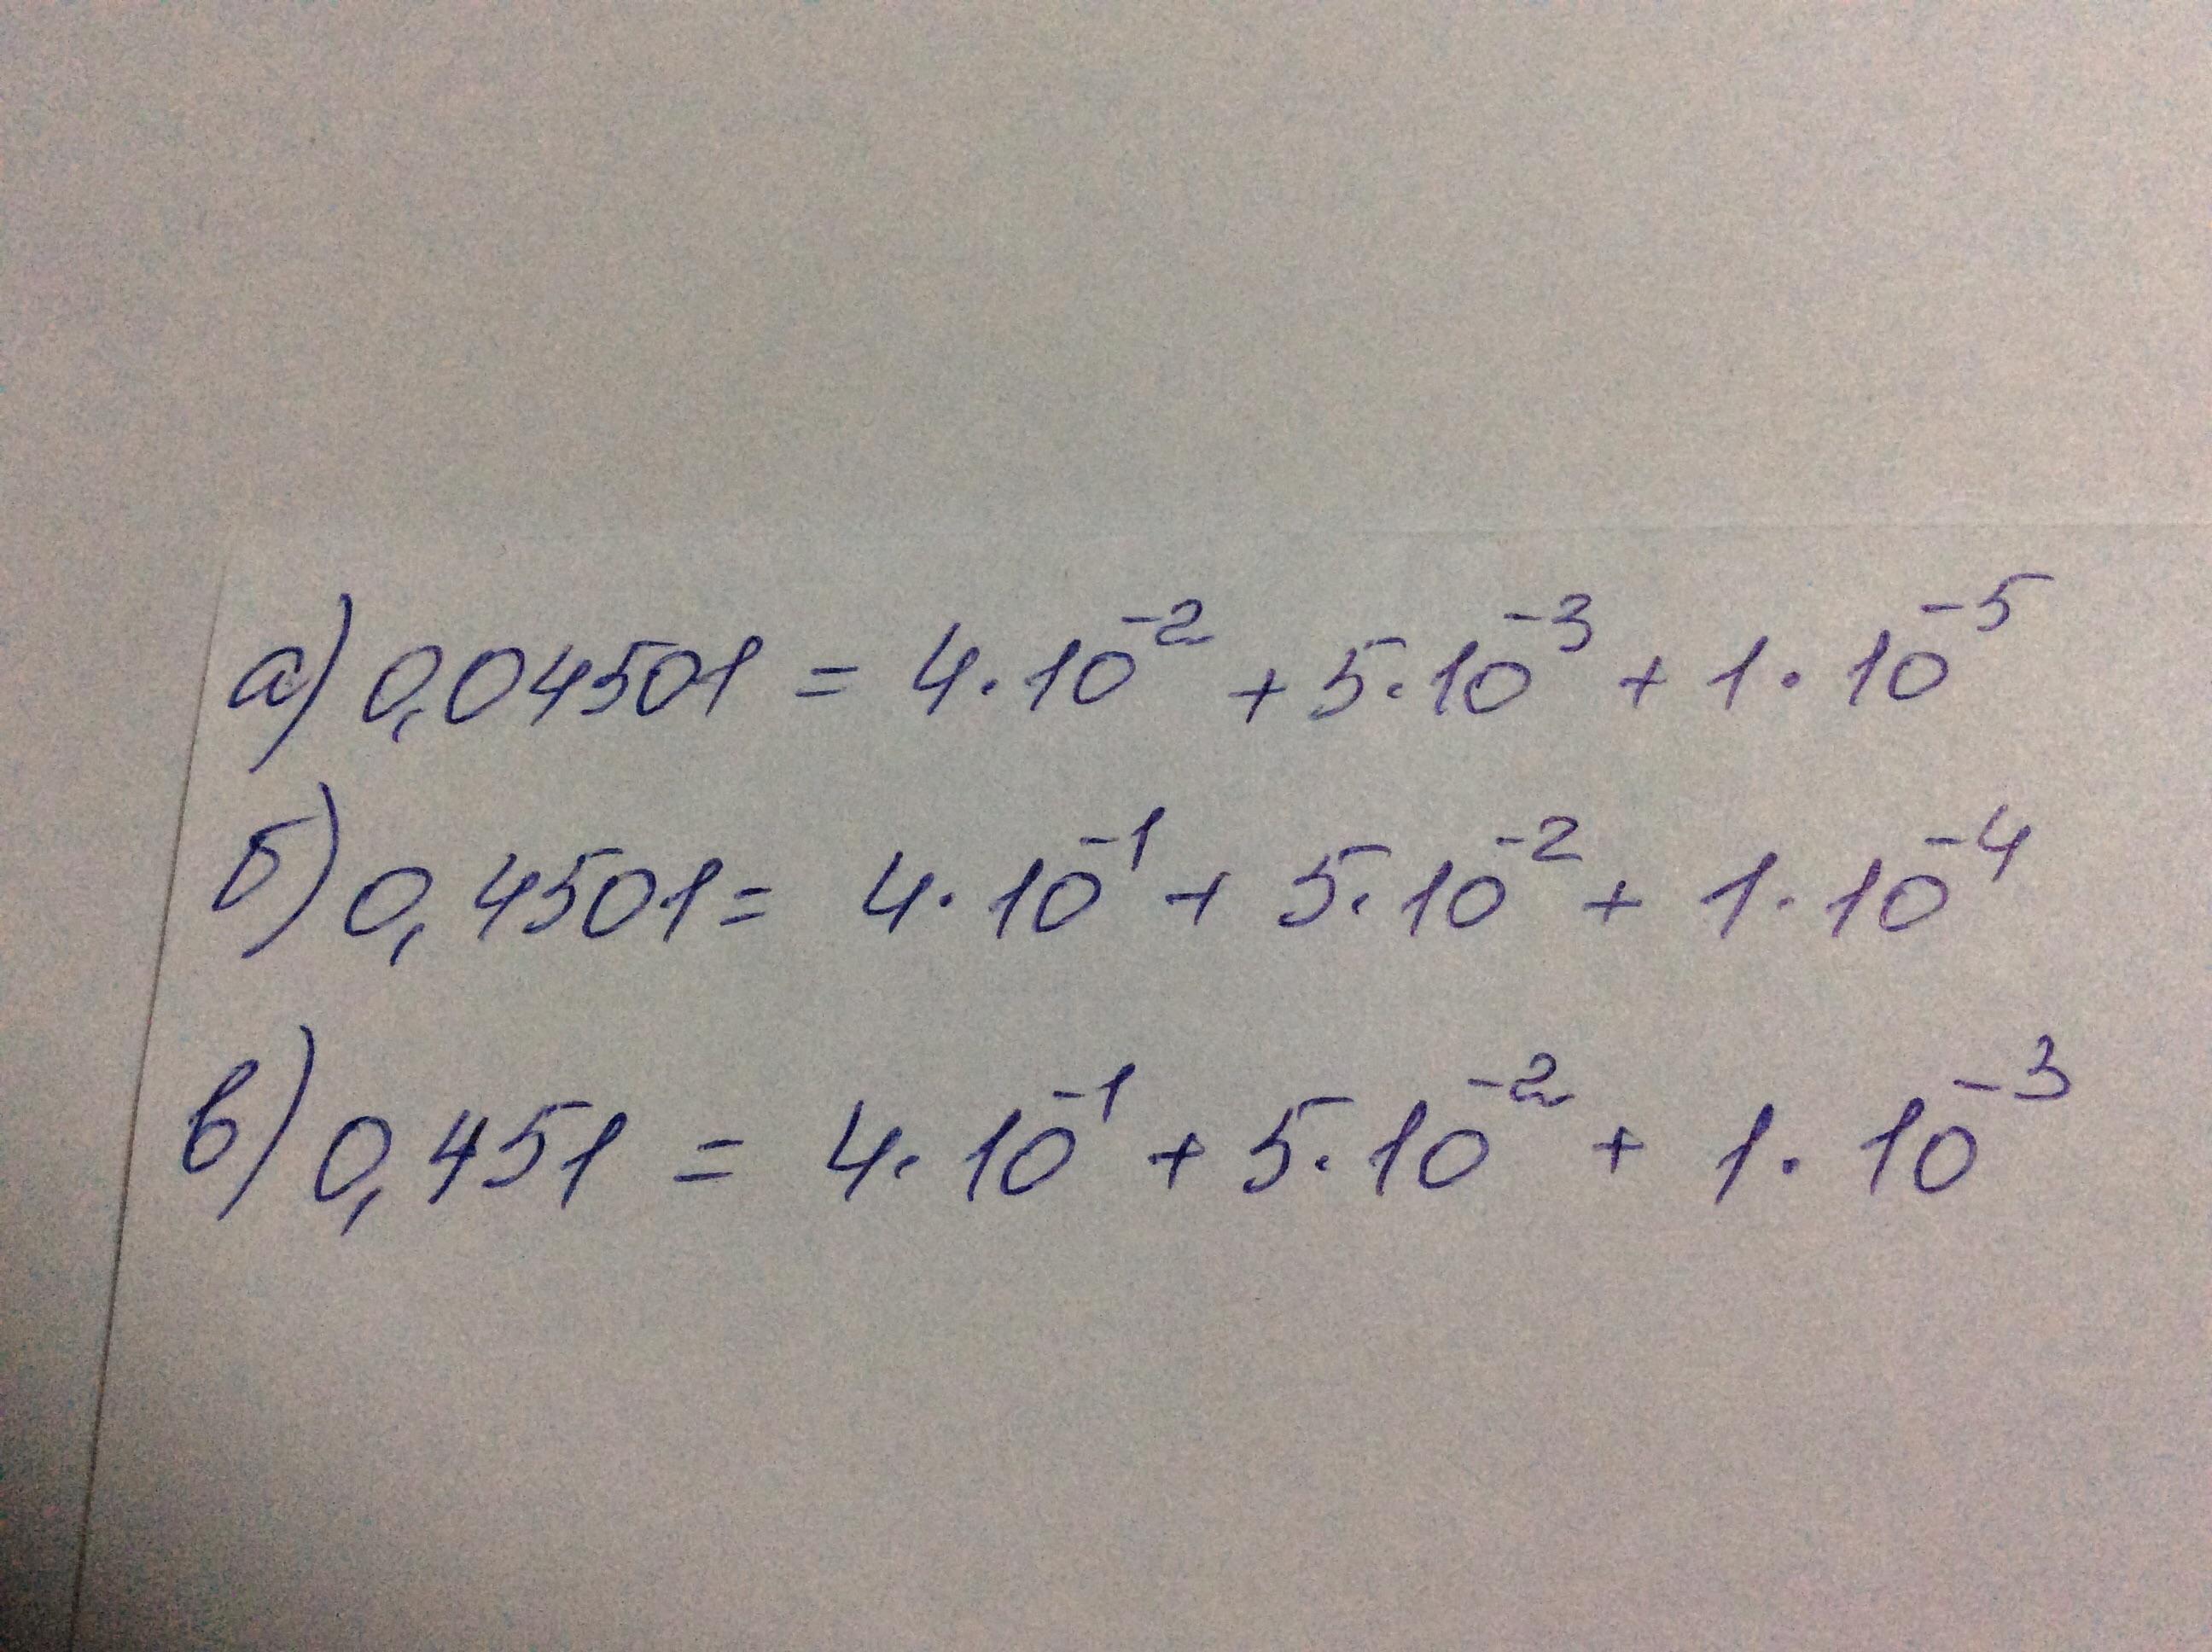 а) 0,04501 = 4·10⁻² + 5·10⁻³ + 1·10⁻⁵
б) 0,4501 = 4·10⁻¹ + 5·10⁻² + 1·10⁻⁴
в) 0,451 = 4·10⁻¹ + 5·10⁻² + 1·10⁻³